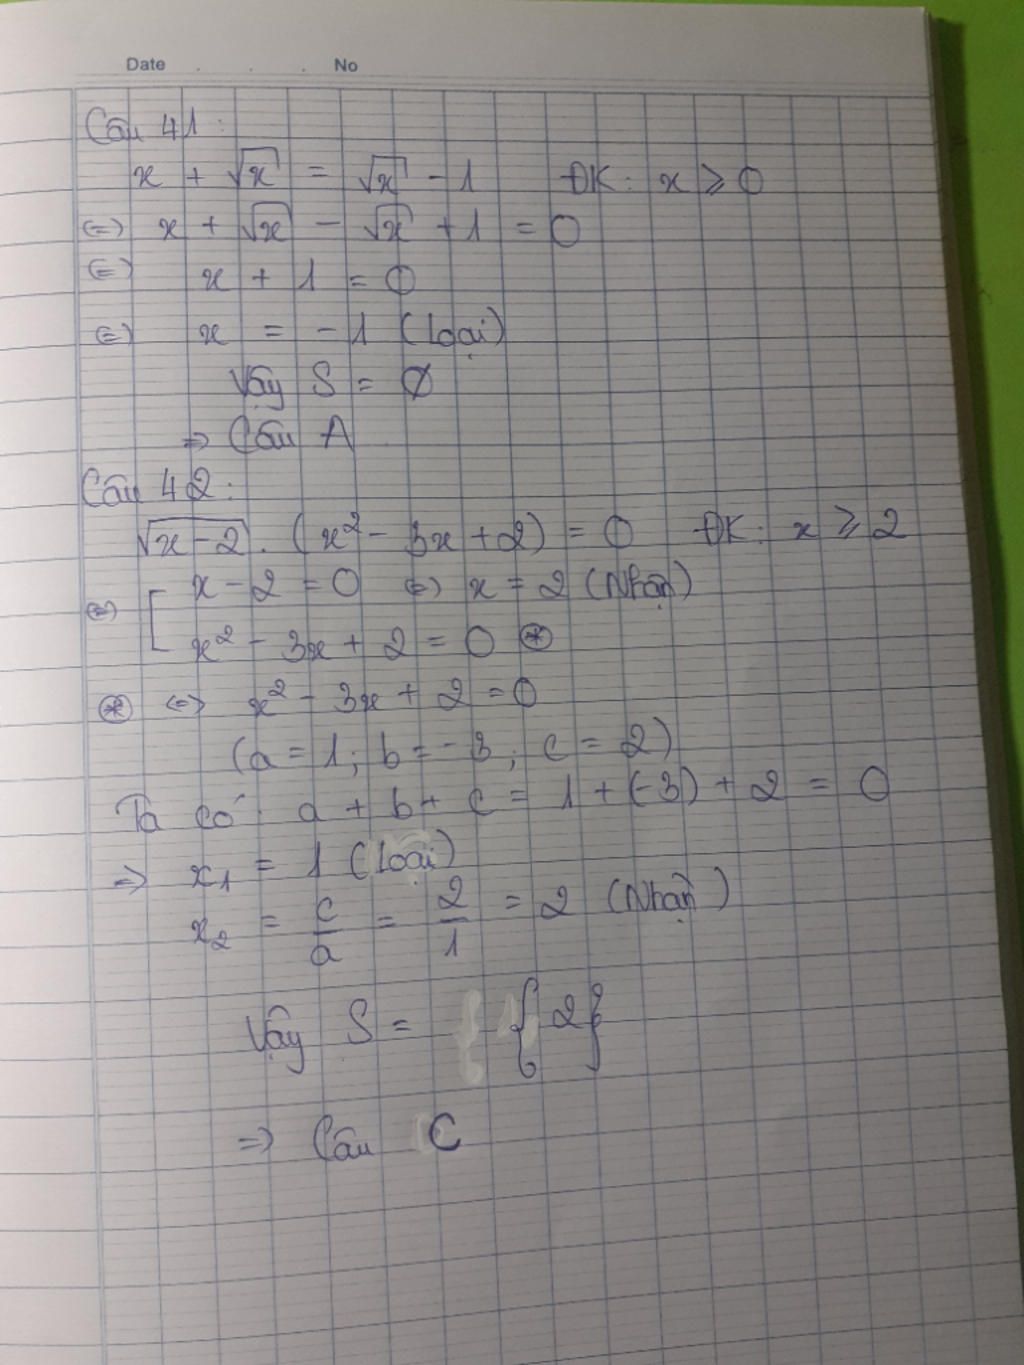 Date . . . No
Câu 41:
x + √x = √x - 1 ĐK: x ≥ 0
(=) x + √x - √x + 1 = 0
(=) x + 1 = 0
(=) x = -1 (Loại)
Vậy S = Ø
=> Câu A
Câu 42:
√x-2 . (x² - 3x + 2) = 0 ĐK: x ≥ 2
(=) [ x - 2 = 0 (=) x = 2 (Nhận)
x² - 3x + 2 = 0 (*)
(*) <=> x² - 3x + 2 = 0
(a = 1; b = -3; c = 2)
Ta có: a + b + c = 1 + (-3) + 2 = 0
=> x₁ = 1 (Loại)
x₂ = c/a = 2/1 = 2 (Nhận)
Vậy S = {2}
=> Câu C